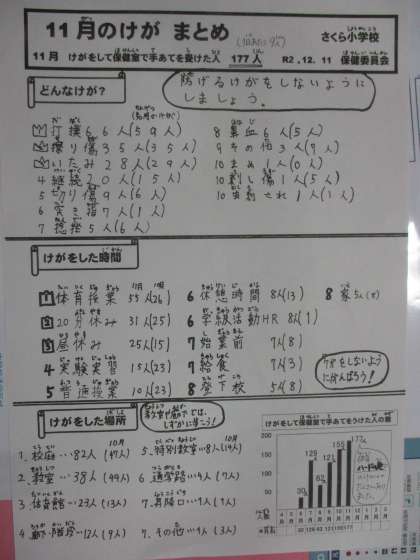 11月のけが まとめ
さくら小学校
11月 けがをして保健室で手あてを受けた人 177人
R2,12,11 保健委員会
防げるけがをしないように
しましょう。
どんなけが?
1 打撲66人(59人)
2 擦り傷35人(35人)
3 いたみ28人(29人)
4 継続20人(15人)
5 切り傷9人(6人)
6 突き指7人(1人)
7 捻挫5人(6人)
8 鼻血6人(5人)
9 その他3人(9人)
10 まめ1人(0人)
10 刺し傷1人(5人)
10 虫刺され1人(1人)
けがをした時間
11月 10月
1 体育授業 55人(26)
2 20分休み 31人(25)
3 昼休み 25人(15)
4 実験実習 15人(23)
5 普通授業 10人(23)
6 休憩時間 8人(13)
6 学級活動HR 8人(1)
7 始業前 7人(8)
7 給食 7人(3)
8 登下校 5人(8)
8 家5人
けがをしないように
がんばろう!
けがをした場所
教室や廊下では、
しずかに歩こう!
10月
1. 校庭…82人(47人)
2. 教室…38人(49人)
3. 体育館…23人(13人)
4. 廊下・階段…12人(9人)
5. 特別教室…8人(14人)
6. 通学路…4人(7人)
7. 昇降口…1人(1人)
7. その他…1人(3人)
けがをして保健室で手あてをうけた人の数
200
150
100
50
0
129
126
155
177人
4 5 6 7 8 9 10 11 12 1 2 3